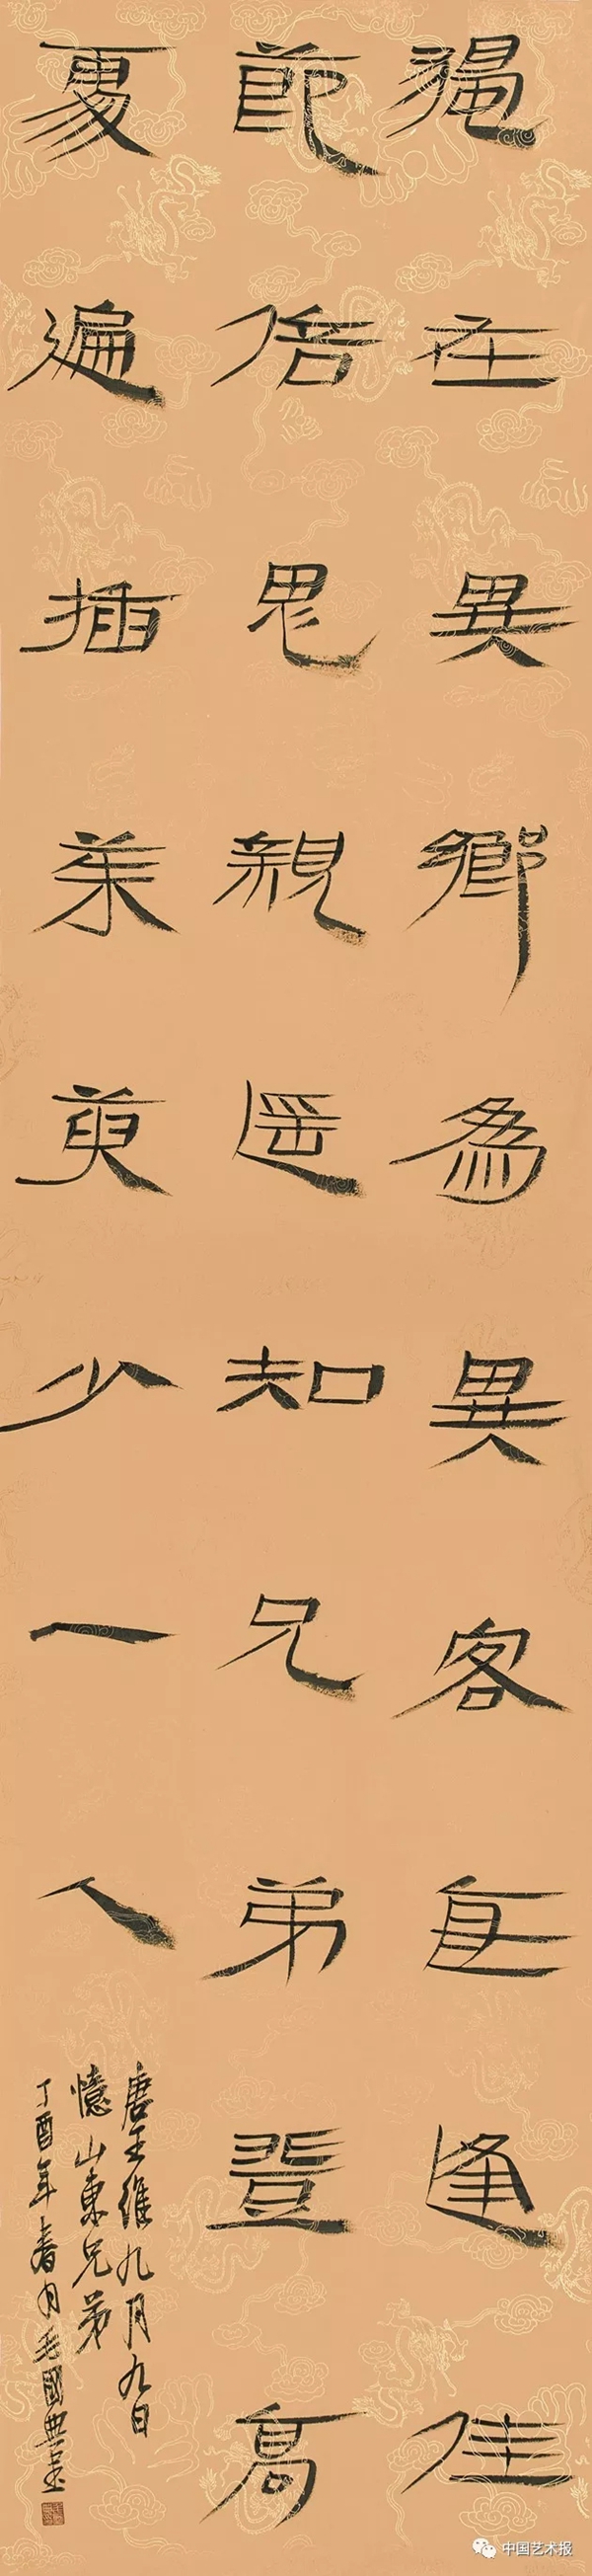 獨在異鄉為異客每逢佳
節倍思親遙知兄弟登高
處遍插茱萸少一人
唐王維九月九日
憶山東兄弟
丁酉年春月毛國典
中国艺术报